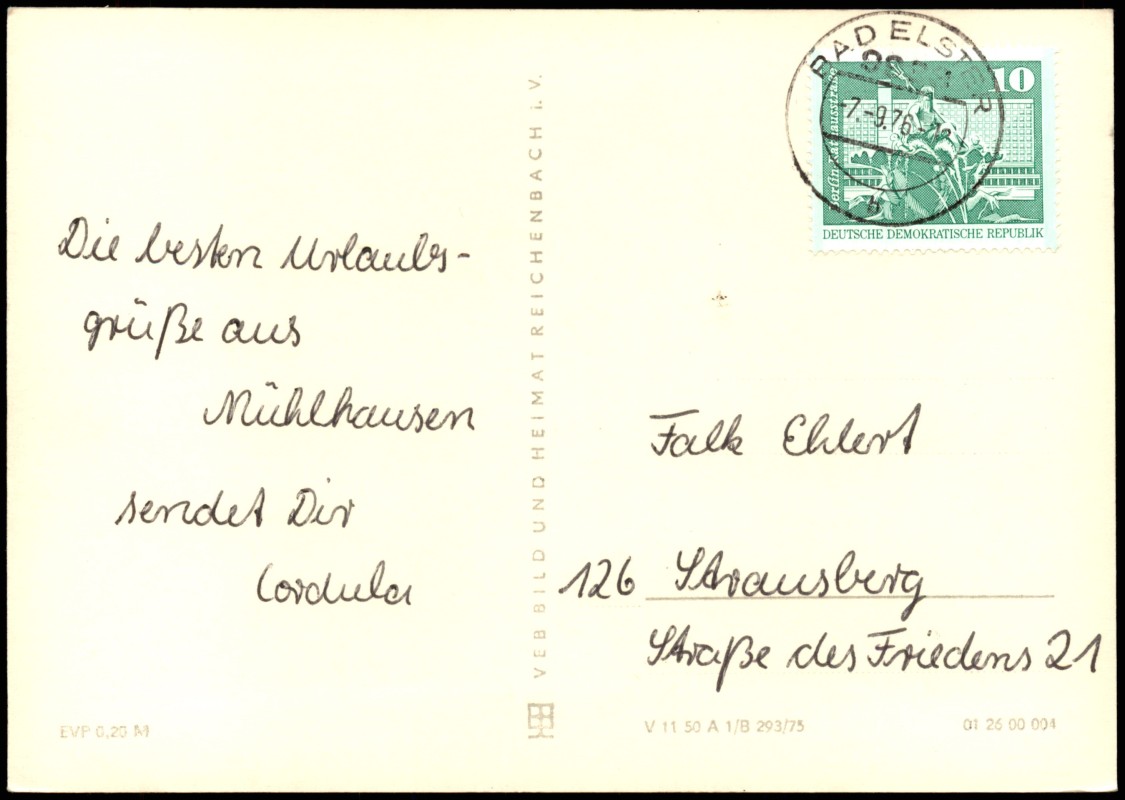 Die besten Urlaubs-
grüße aus
Mühlhausen
sendet Dir
Cordula
EVP 0,20 M
VEB BILD UND HEIMAT REICHENBACH i. V.
BAD ELSTER
-7.-9.76
10
DEUTSCHE DEMOKRATISCHE REPUBLIK
Falk Ehlert
126 Strausberg
Straße des Friedens 21
V 11 50 A 1/B 293/75
01 26 00 004